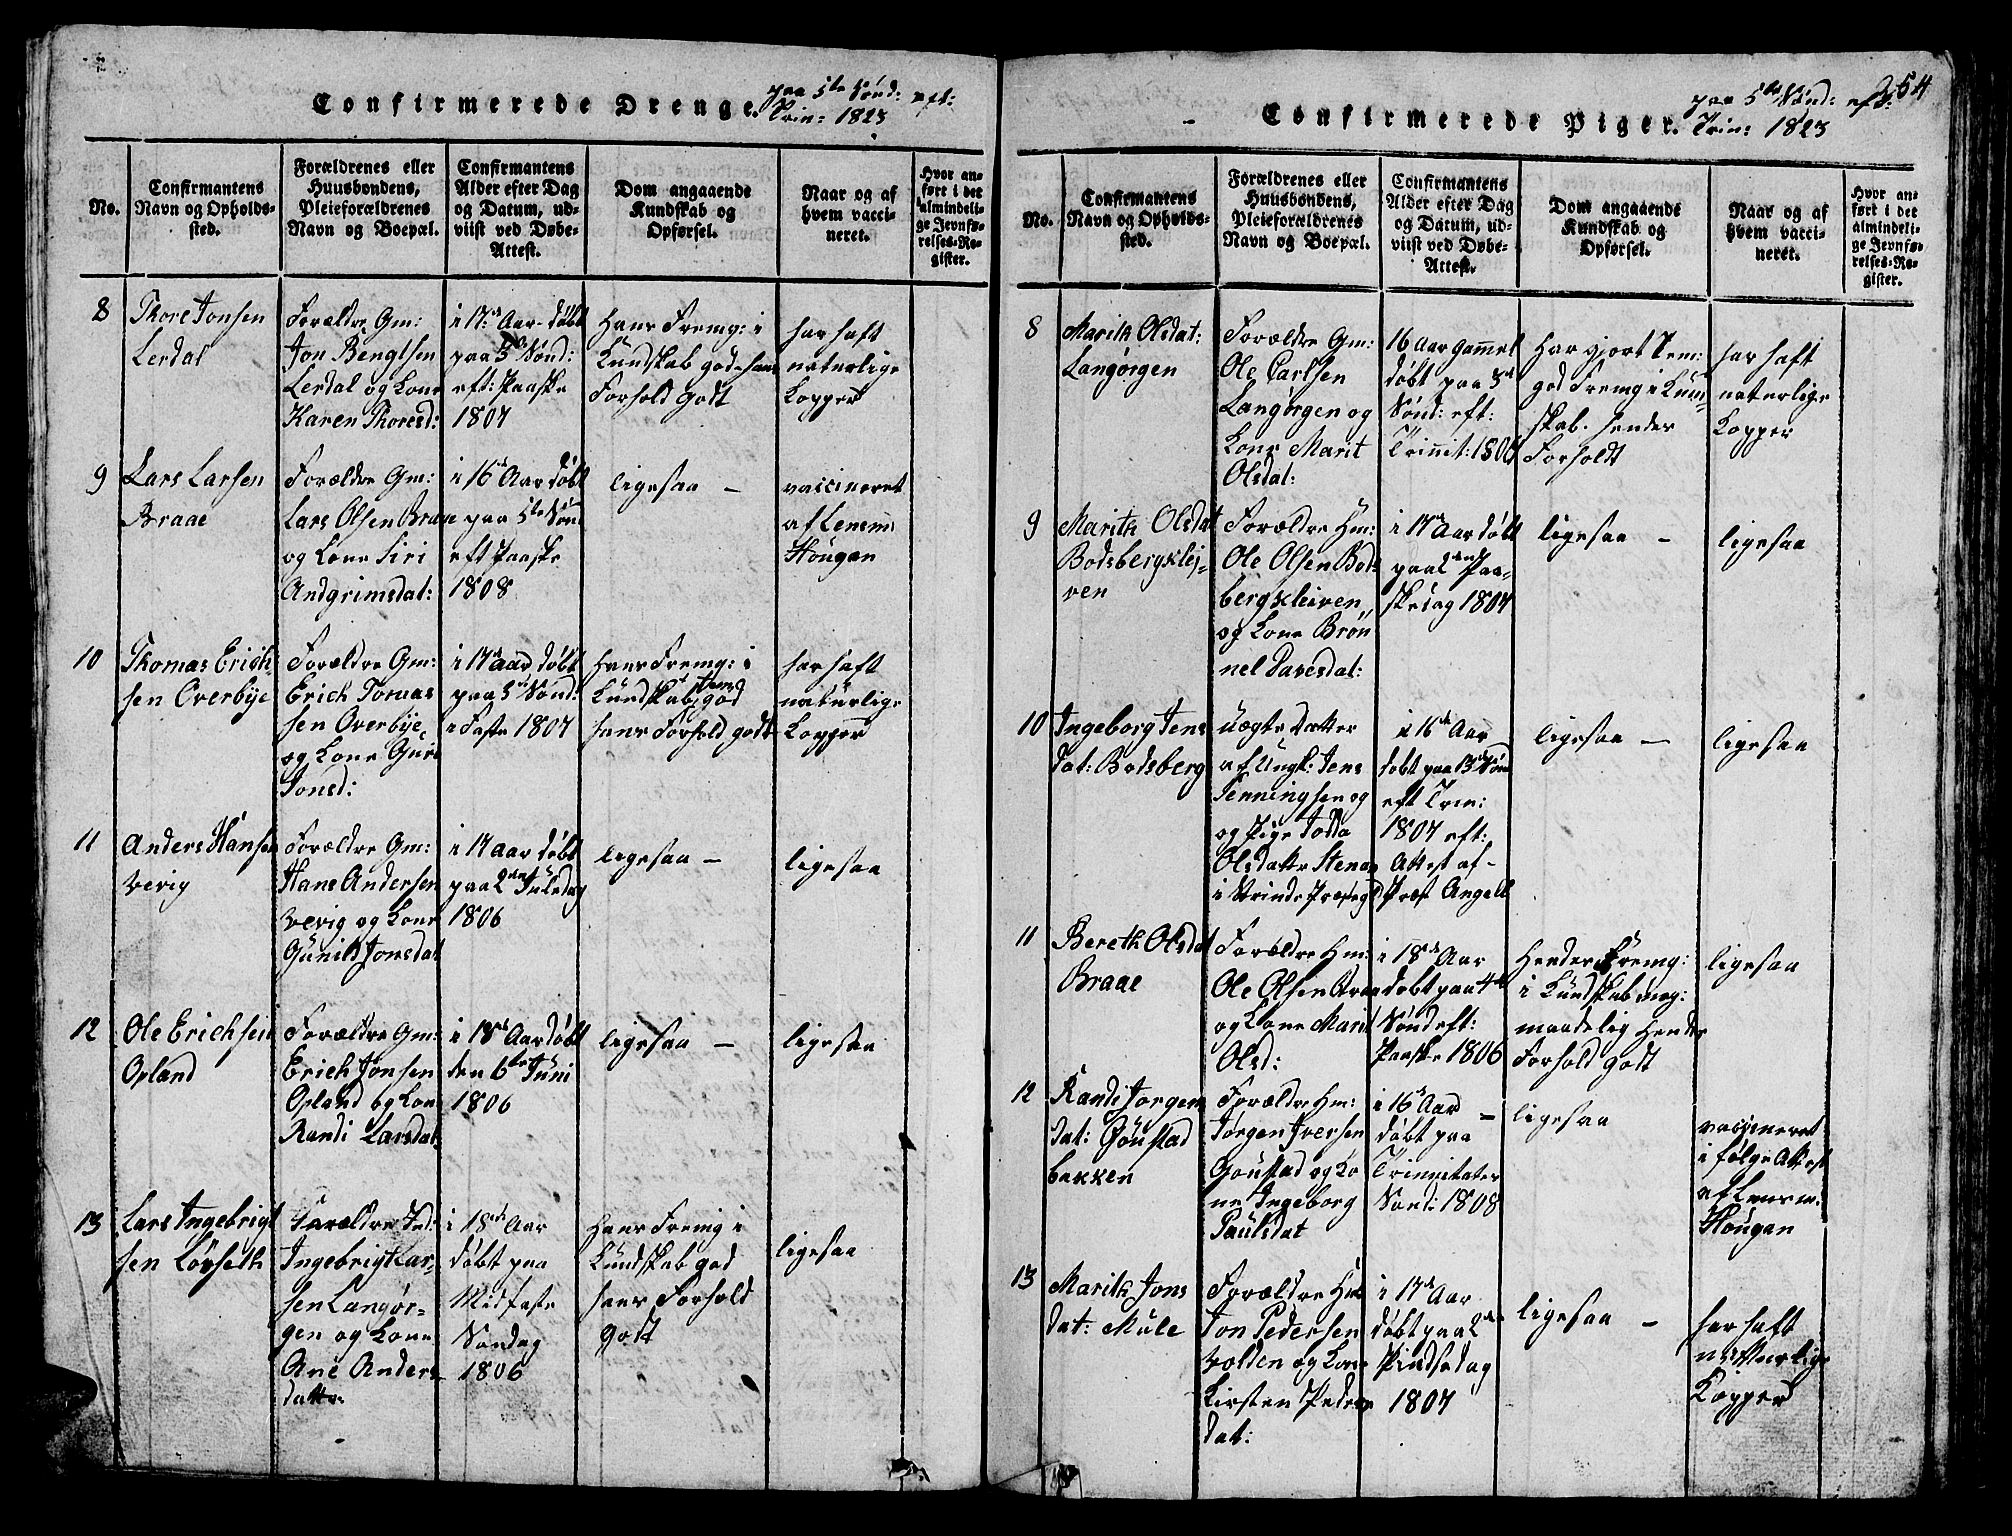 Confirmerede Drenge. paa 5te Sönd: eft:
Trin: 1823
No.
Confirmantens
Navn og Opholds-
sted.
Forældrenes eller
Huusbondens,
Pleieforældrenes
Navn og Boepæl.
Confirmantens
Alder efter Dag
og Datum, ud-
viist ved Døbe-
Attest.
Dom angaaende
Kundskab og
Opførsel.
Naar og af
hvem vacci-
neret.
Hvor an-
ført i det
almindeli-
ge Jevnfø-
relses-Re-
gister.
8
Thore Jonsen
Lerdal
Forældre Gm:
Jon Bengtsen
Lerdal og Kone
Karen Thoresd:
i 17de Aar döbt
paa 3de Sönd:
eft: Paaske
1807
Hans Fremg: i
Kundskab god hans
Forhold godt
har haft
naturlige
Kopper
9
Lars Larsen
Braae
Forældre Gm:
Lars Olsen Braae
og Kone Siri
Andgrimsdat:
i 16de Aar döbt
paa 5te Sön
eft Paaske
1808
ligesaa —
vaccineret
af Lensm:
Hougan
10
Thomas Erich-
sen Overbye
Forældre Gm:
Erich Tomas
sen Overbye
og Kone Guri
Jonsd:
i 17de Aar döbt
paa 3de Sönd:
i Faste 1807
Hans Fremg: i
Kundskab tem god
hans Forhold godt
har haft
naturlige
Kopper
11
Anders Hansen
Vevig
Forældre Gm:
Hans Andersen
Vevig og Kone
Gunild Jonsdat
i 17 Aar döbt
paa 2den Juledag
1806
ligesaa —
ligesaa
12
Ole Erichsen
Opland
Forældre Gm:
Erich Jonsen
Opland og Kone
Randi Larsdat
i 18de Aar döbt
den 6te Juni
1806
ligesaa —
ligesaa
13
Lars Ingebrigt
sen Lövseth
Forældre Ind:
Ingebrigt Lar-
sen Langör-
gen og Kone
Ane Anders
datter
i 18de Aar
döbt paa
Midfaste
Söndag
1806
Hans Fremg i
Kundskab god
hans Forhold
godt
ligesaa
54
Confirmerede Piger. paa 5te Sönd: eft:
Trin: 1823
No.
Confirmantens
Navn og Opholds-
sted.
Forældrenes eller
Huusbondens,
Pleieforældrenes
Navn og Boepæl.
Confirmantens
Alder efter Dag
og Datum, ud-
viist ved Døbe-
Attest.
Dom angaaende
Kundskab og
Opførsel.
Naar og af
hvem vacci-
neret.
Hvor an-
ført i det
almindeli-
ge Jevnfø-
relses-Re-
gister.
8
Marith Olsdat:
Langörgen
Forældre Gm:
Ole Carlsen
Langörgen og
Kone Marit
Olsdat:
16 Aar gammel
döbt paa 3de
Sönd: eft:
Trinit: 1806
Har gjort Tem:
god Fremg i Kund-
skab. hendes
Forholdt
har haft
naturlige
Kopper
9
Marith Olsdat
Bodsbergklej-
ven
Forældre Hm:
Ole Olsen Bods
bergkleiven
og Kone Brön
nel Davesdat:
i 17de Aar döbt
paa 2den Paa-
skedag 1807
ligesaa —
ligesaa
10
Ingeborg Jens
dat: Bodsberg
uægte Datter
af Ungk: Jens
Jenningsen og
og Pige Todda
Olsdatter Stenaas
i Strinde Præsteg
i 16de Aar
döbt paa 13de Sönd
eft Trin:
1807 eft:
Attest af
Præst Angell
ligesaa —
ligesaa
11
Bereth Olsdat
Braae
Forældre Hm:
Ole Olsen Braae
og Kone Marit
Olsd:
i 18de Aar
döbt paa 4de
Sönd eft:
Paaske 1806
Hendes Fremg:
i Kundskab meg:
maadelig Hendes
Forhold godt
ligesaa
12
Randi Jörgens
dat: Göustad
bakken
Forældre Hm:
Jörgen Iversen
Göustad og Ko
ne Ingeborg
Paulsdat
i 16de Aar
döbt paa
Trinitates
Sönd: 1808
— ligesaa
vaccineret
i fölge Attest
af Lensm:
Hougan
13
Marith Jons
dat: Mule
Forældre Hm
Jon Pedersen
Volden og Kone
Kirsten Peders
dat:
i 17de Aar
döbt paa 2den
Pindsedag
1807
ligesaa —
har haft
naturlige
Kopper